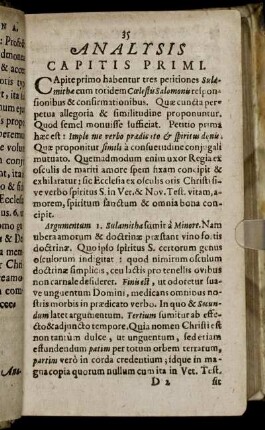 35
ANALYSIS
CAPITIS PRIMI.
CApite primo habentur tres petitiones Sula-
mithæ cum totidem Cœlestis Salomonis respon-
sionibus & confirmationibus. Quæ cuncta per-
petua allegoria & similitudine proponuntur.
Quod semel monuisse sufficiat. Petitio prima
hæc est: Imple me verbo prædicato & spiritus donis.
Quæ proponitur simili à consuetudine conjugali
mutuato. Quemadmodum enim uxor Regia ex
osculis de mariti amore spem hxam concipit &
exhilaratur; sic Ecclesia ex osculis oris Christi si-
ve verbo spiritus S. in Vet. & Nov. Test. vitam, a-
morem, spiritum sanctum & omnia bona con-
cipit.
Argumentum 1. Sulamitha sumit à Minore. Nam
ubera amorum & doctrinæ præstant vino fortis
doctrinæ. Quo ipso spiritus S. certorum genus
osculorum indigitat: quod nimirum osculum
doctrinæ simplicis, ceu lactis pro tenellis ovibus
non carnale desideret. Finis est, ut odoretur sua-
ve unguentum Domini, medicans omnibus no-
stris morbis in prædicato verbo. In quo & Secun-
dum latet argumentum. Tertium sumitur ab effe-
cto & adjuncto tempore. Quia nomen Christi est
non tantùm dulce, ut unguentum, sed etiam
effundendum partim per totum orbem terrarum,
partim verò in corda credentium; idque in ma-
gna copia quotum nullum cum ita in Vet. Test.
D 2 sit